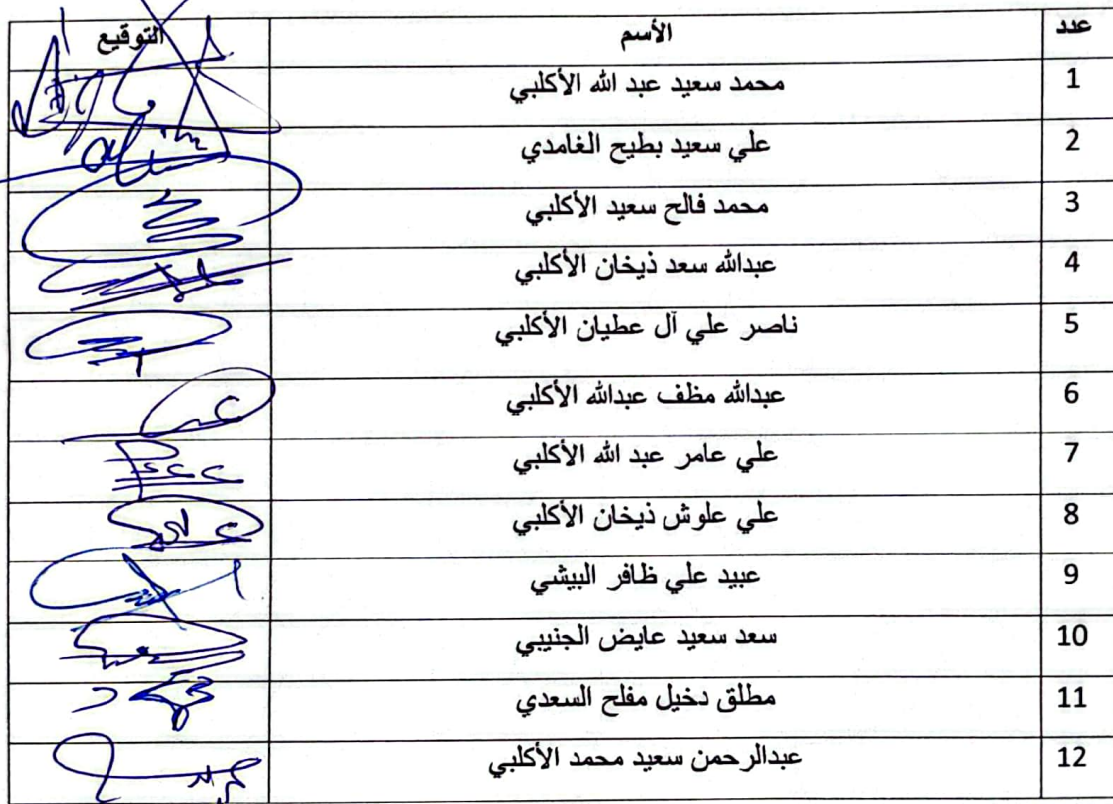 عدد الأسم التوقيع
1 محمد سعيد عبد الله الأكلبي
2 علي سعيد بطيح الغامدي
3 محمد فالح سعيد الأكلبي
4 عبدالله سعد ذيخان الأكلبي
5 ناصر علي آل عطيان الأكلبي
6 عبدالله مظف عبدالله الأكلبي
7 علي عامر عبد الله الأكلبي
8 علي علوش ذيخان الأكلبي
9 عبيد علي ظافر البيشي
10 سعد سعيد عايض الجنيبي
11 مطلق دخيل مفلح السعدي
12 عبدالرحمن سعيد محمد الأكلبي